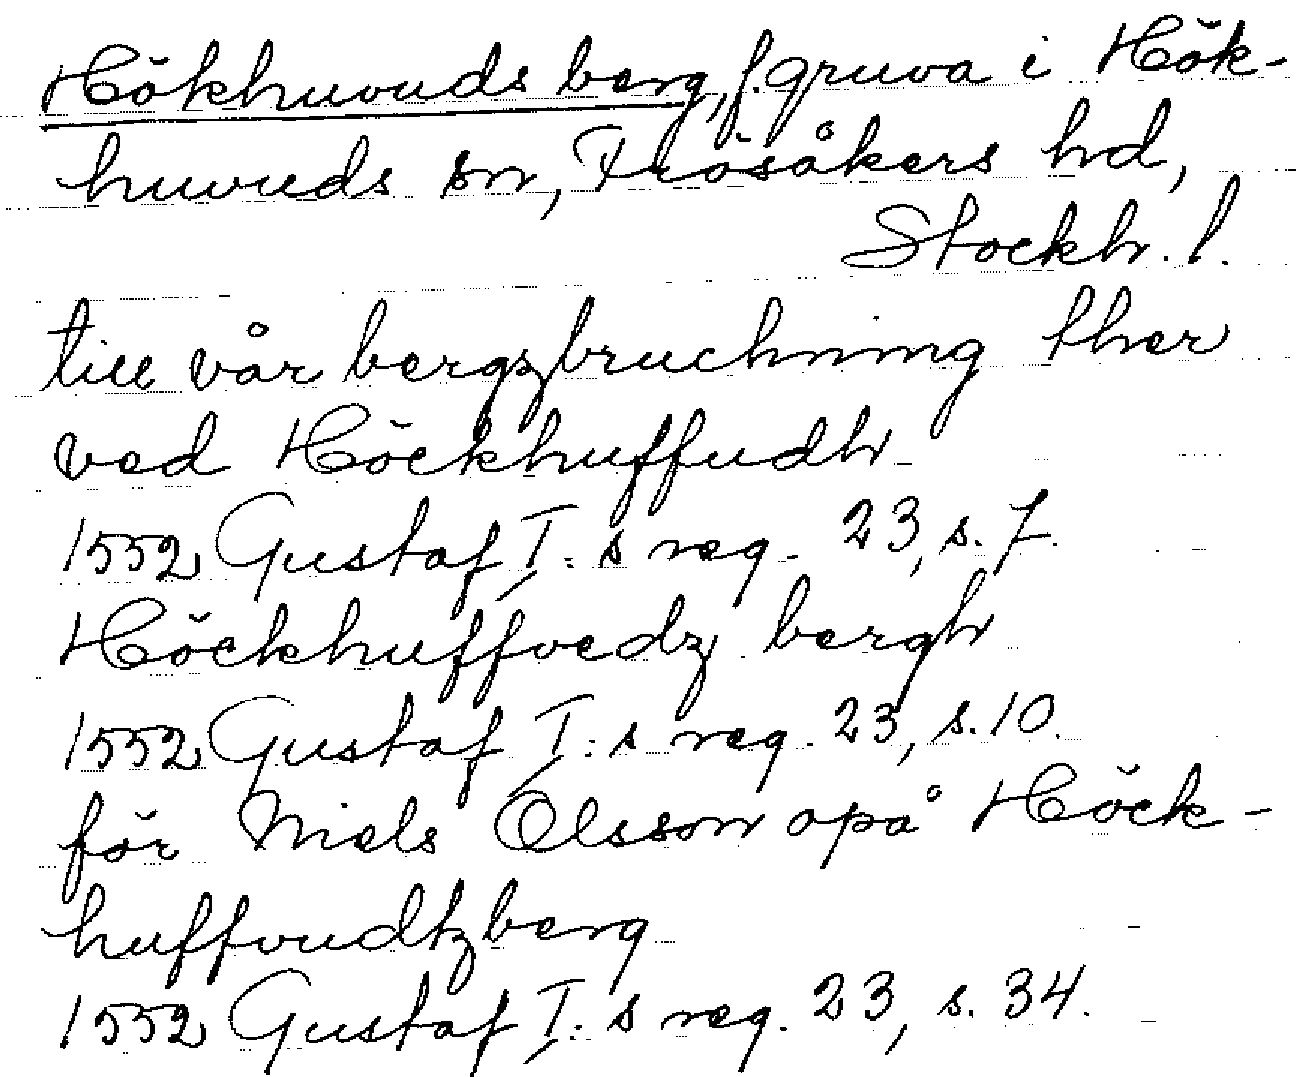 Hökhuvuds berg, f. gruva i Hök-
huvuds sn, Frösåkers hd,
Stockh. l.
till vår bergzbruchning ther
ved Höckhuffudh
1552 Gustaf I:s reg. 23, s. 7.
Höckhuffvedz bergh
1552 Gustaf I:s reg. 23, s. 10.
för Niels Olsson opå Höck-
huffvudtzberg
1552 Gustaf I:s reg. 23, s. 34.